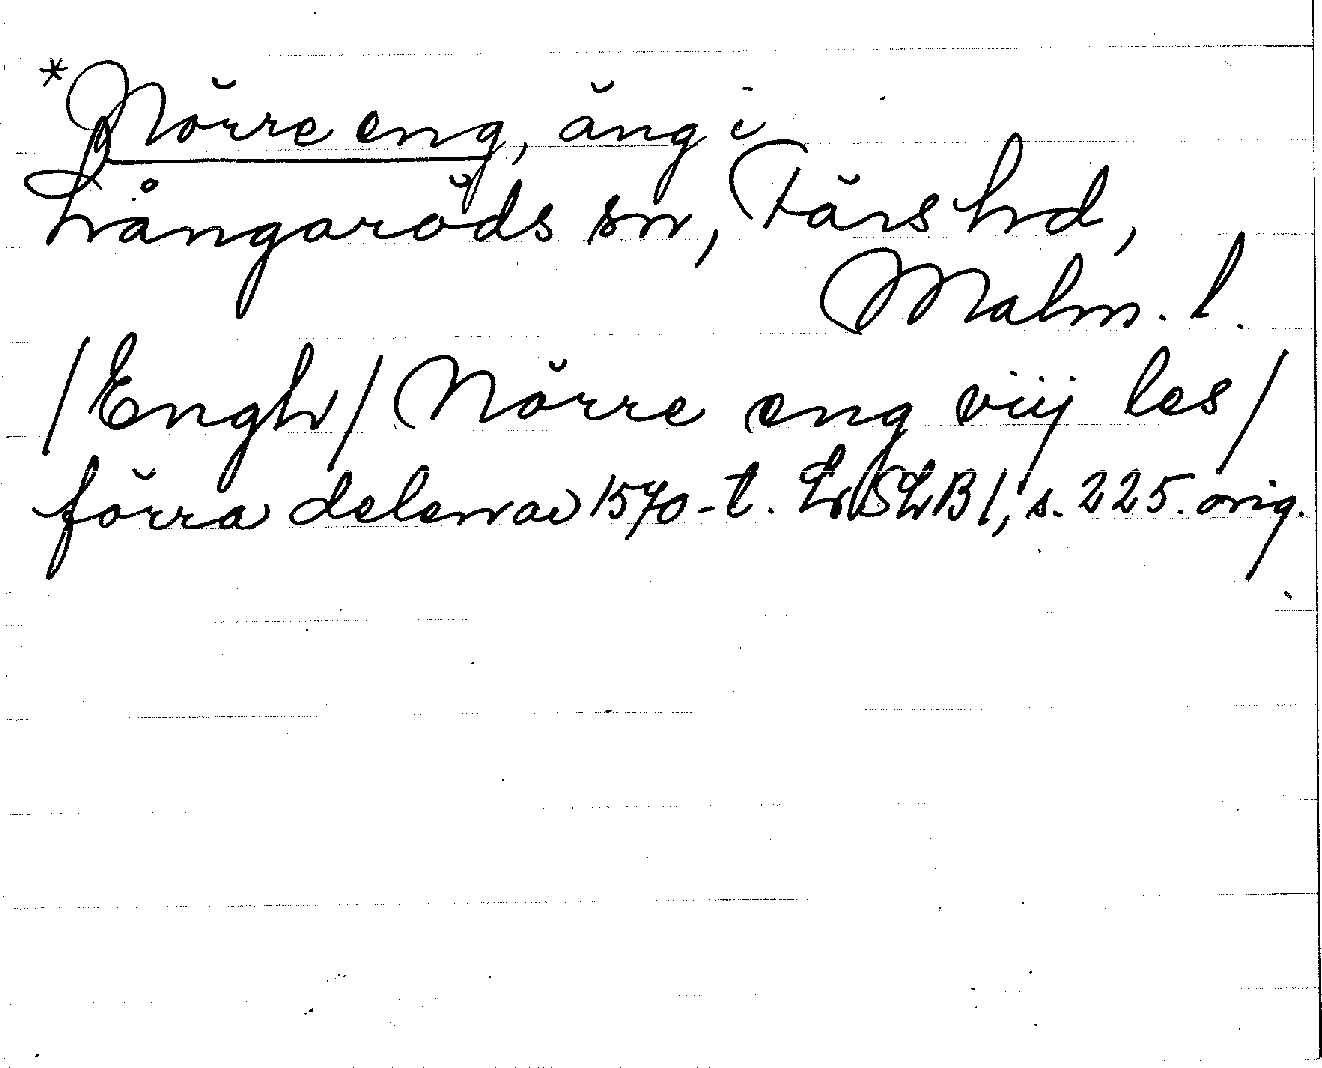 *Nörre eng, äng i
Långaröds sn, Färs hd,
Malm. l.
/Engh/ Nörre eng viij les/
förra delen av 1570-t. LrSLB I, s. 225. orig.